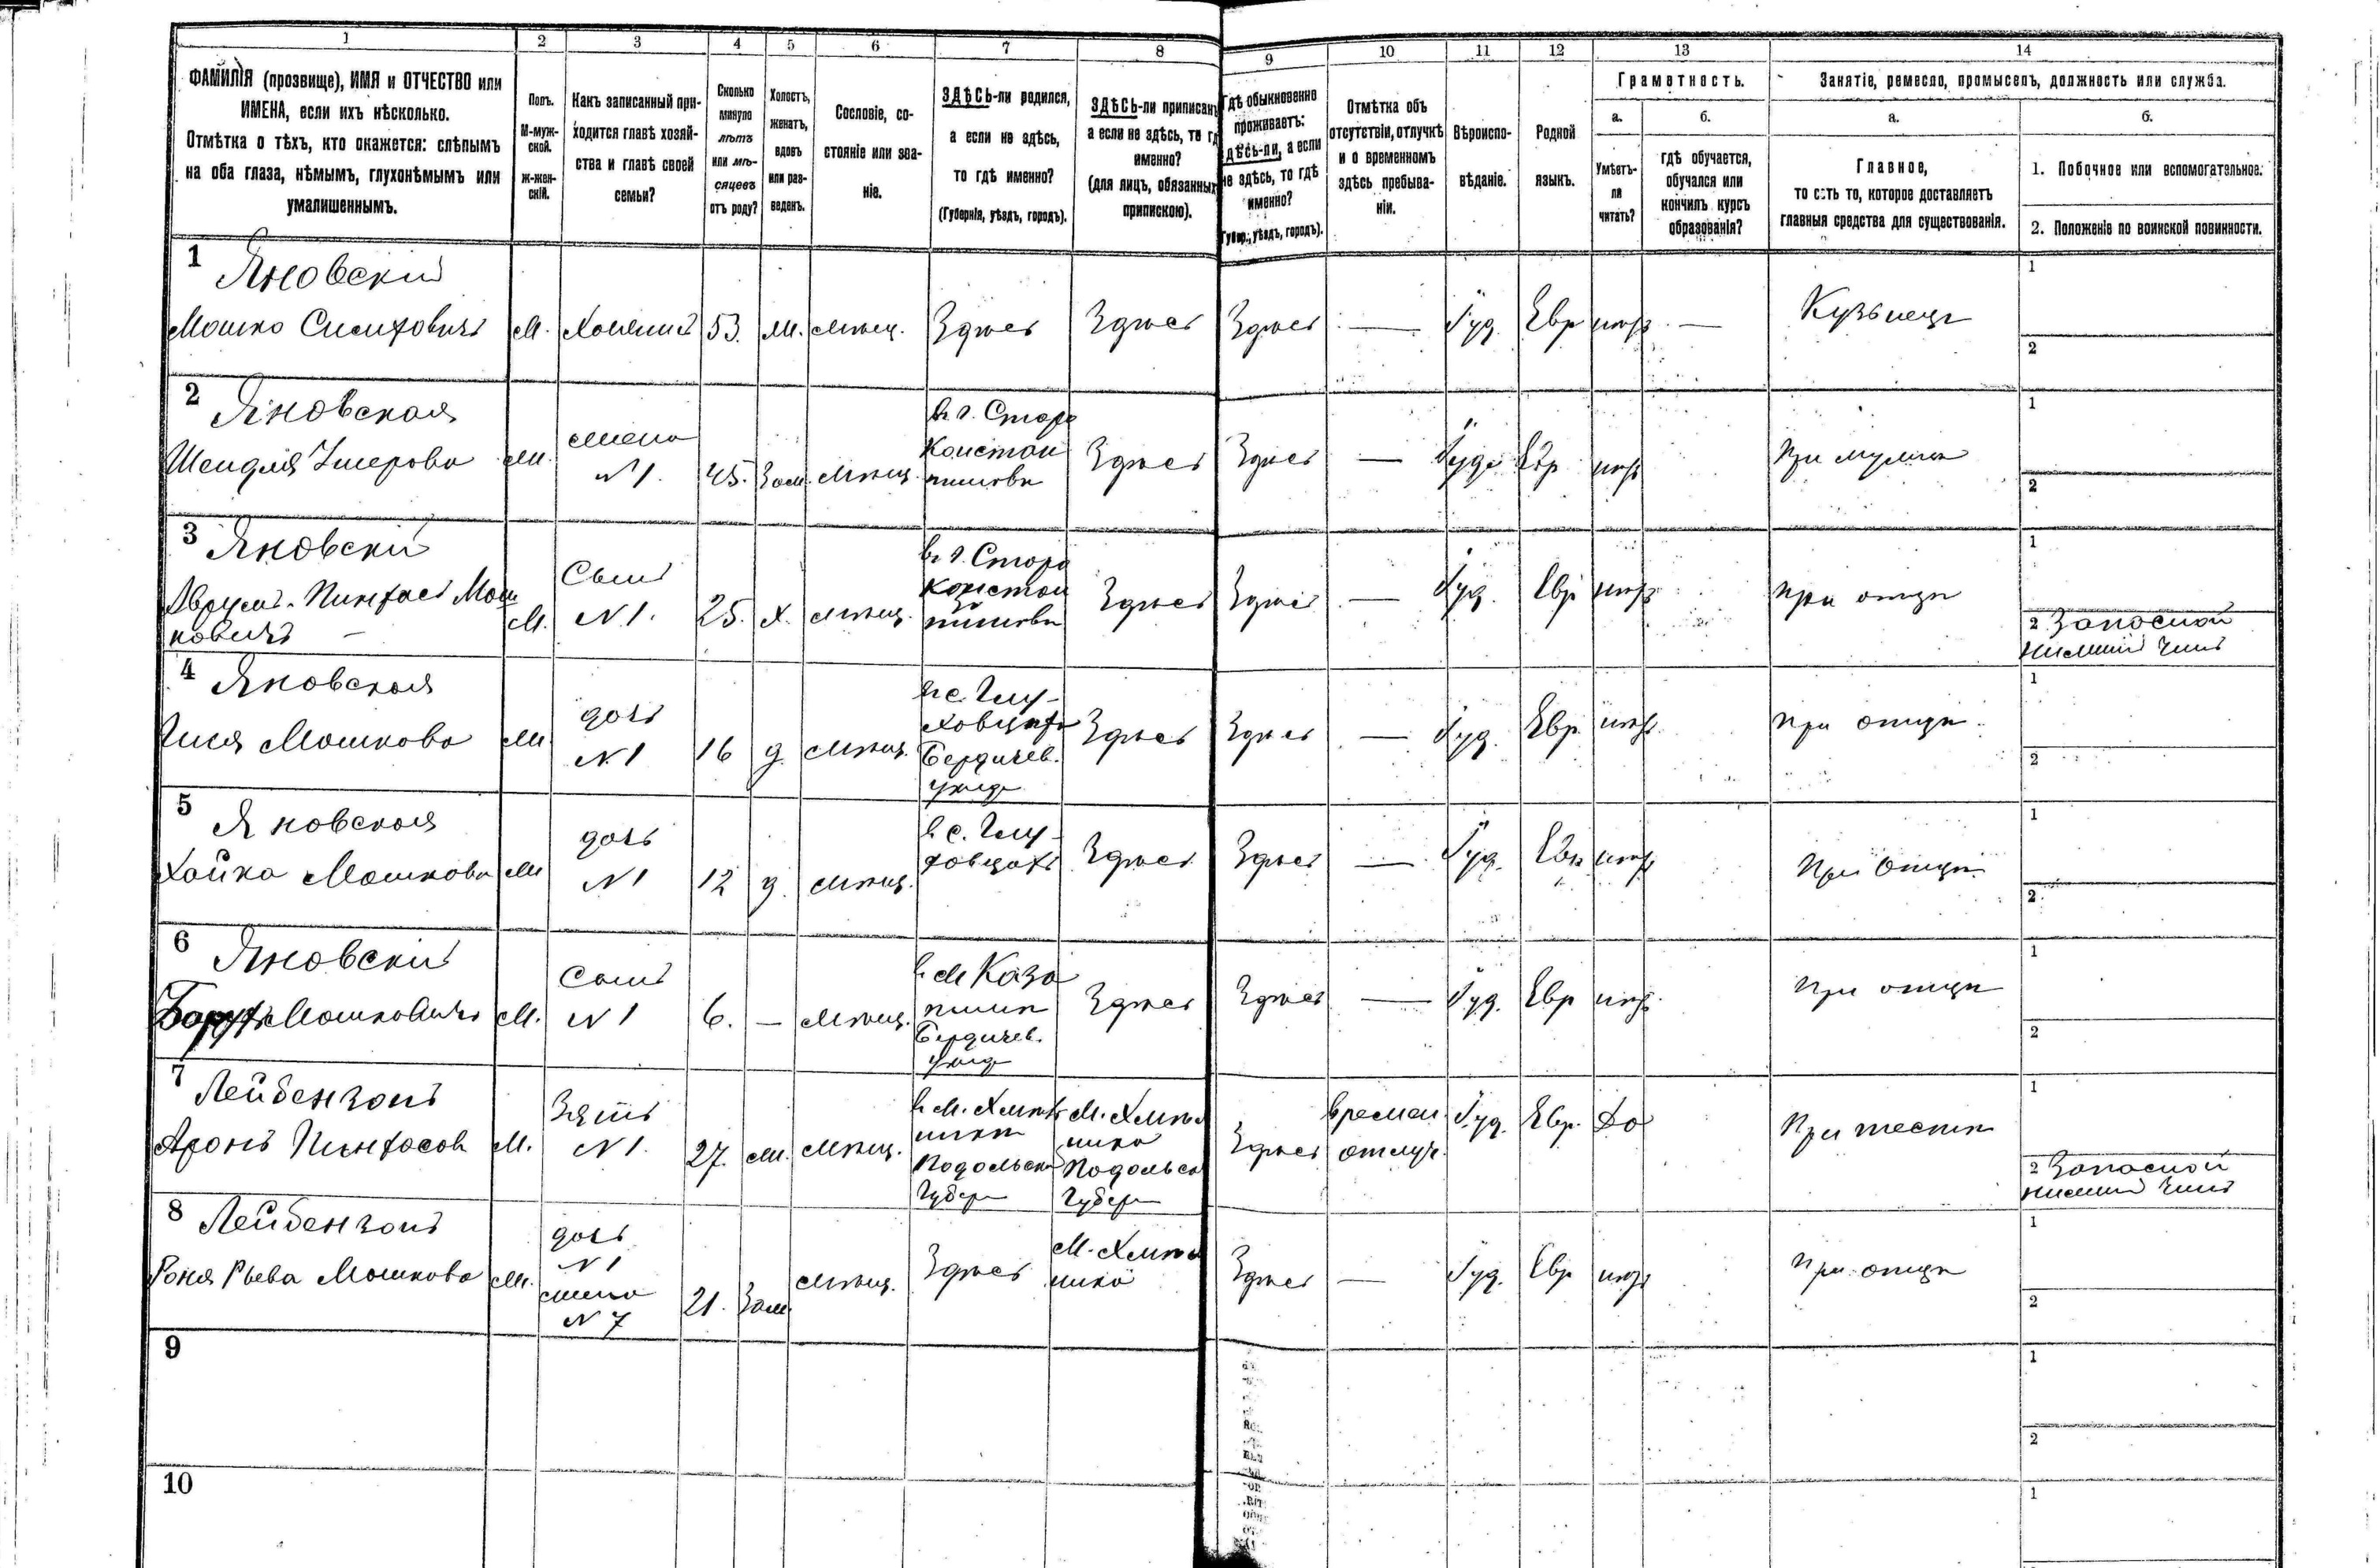 1 2 3 4 5 6 7 8 9 10 11 12 13 14
ФАМИЛІЯ (прозвище), ИМЯ и ОТЧЕСТВО или
ИМЕНА, если ихъ нѣсколько.
Отмѣтка о тѣхъ, кто окажется: слѣпымъ
на оба глаза, нѣмымъ, глухонѣмымъ или
умалишеннымъ.
Полъ.
М-муж-
ской.
Ж-жен-
скій.
Какъ записанный при-
ходится главѣ хозяй-
ства и главѣ своей
семьи?
Сколько
минуло
лѣтъ
или мѣ-
сяцевъ
отъ роду?
Холостъ,
женатъ,
вдовъ
или раз-
веденъ.
Сословіе, со-
стояніе или зва-
ніе.
ЗДѢСЬ-ли родился,
а если не здѣсь,
то гдѣ именно?
(Губернія, уѣздъ, городъ).
ЗДѢСЬ-ли приписанъ
а если не здѣсь, то гд
именно?
(для лицъ, обязанныхъ
припискою).
Гдѣ обыкновенно
проживаетъ:
здѣсь-ли, а если
не здѣсь, то гдѣ
именно?
Губер., уѣздъ, городъ).
Отмѣтка объ
отсутствіи, отлучкѣ
и о временномъ
здѣсь пребыва-
ніи.
Вѣроиспо-
вѣданіе.
Родной
языкъ.
Грамотность.
а.
Умѣетъ-
ли
читать?
б.
гдѣ обучается,
обучался или
кончилъ курсъ
образованія?
Занятіе, ремесло, промыселъ, должность или служба.
а.
Главное,
то есть то, которое доставляетъ
главныя средства для существованія.
б.
1. Побочное или вспомогательное.
2. Положеніе по воинской повинности.
1 Яновскій
Мошко М. Хозяинъ 53. ж. мѣщ. Здѣсь Здѣсь Здѣсь — Іуд. Евр нѣтъ — Кузнецъ
1
2
2 Яновская
Шендля ж. жена
N 1. 45. Зам. мѣщ.
въ г. Старо
Констан
тиновѣ
Здѣсь Здѣсь — Іуд. Евр нѣтъ При мужѣ
1
2
3 Яновскій
Аврумъ-Пинхасъ Мош
ковичъ — М.
Сынъ
N 1. 25. х. мѣщ.
въ г. Старо
Констан
тиновѣ
Здѣсь Здѣсь — Іуд. Евр нѣтъ при отцѣ
1
2 Запасной
нижній чинъ
4 Яновская
Мошкова ж
дочь
N 1 16 д. мѣщ.
въ с. Глу-
ховцахъ
Бердичев.
уѣзд
Здѣсь Здѣсь — Іуд. Евр. нѣтъ при отцѣ
1
2
5 Яновская
Хайка Мошкова ж
дочь
N 1 12 д. мѣщ.
в с. Глу-
ховцахъ
Здѣсь Здѣсь — Іуд. Евр нѣтъ При Отцѣ
1
2
6 Яновскій
Борухъ Мошковичъ М.
Сынъ
N 1 6. — мѣщ.
в. м Каза
тинѣ
Бердичев.
уѣзд
Здѣсь Здѣсь — Іуд. Евр нѣтъ При отцѣ
1
2
7 Лейбензонъ
Аронъ Пинхасов М.
Зять
N 1. 27. ж. мѣщ.
в. м. Хмѣль
никѣ
Подольск
Губерн
М. Хмѣль
никъ
Подольск
Губерн
Здѣсь
времен.
отлуч.
Іуд. Евр. Да При тестѣ
1
2 Запасной
нижній чинъ
8 Лейбензонъ
Рыва Мошкова ж.
дочь
N 1
жена
N 7
21. Зам мѣщ. Здѣсь
М. Хмѣль
никъ
Здѣсь — Іуд. Евр нѣтъ При отцѣ
1
2
9
1
2
10
1